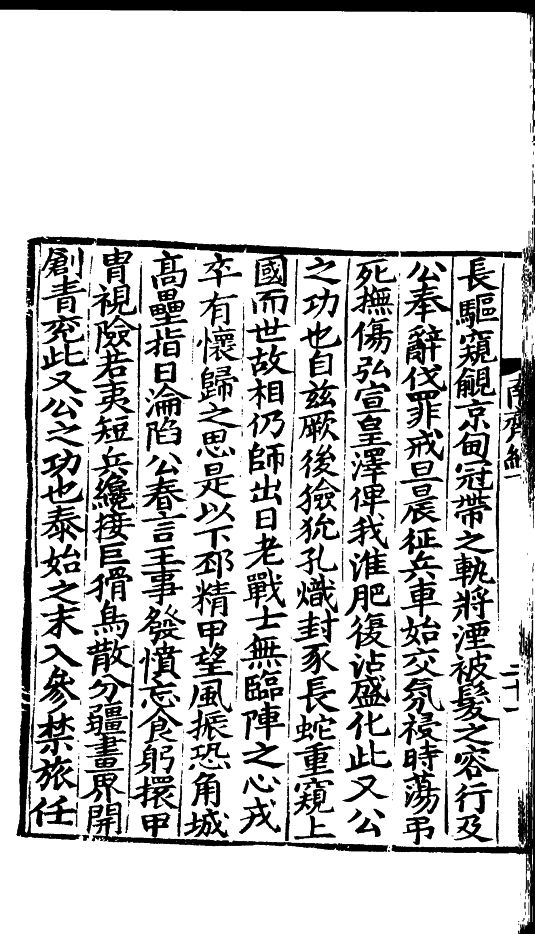 長驅窺覦京甸冠帶之軌將湮被髮之容行及
公奉辭伐罪戒旦晨征兵車始交氛祲時蕩弔
死撫傷弘宣皇澤俾我淮肥復沾盛化此又公
之功也自兹厥後獫狁孔熾封豕長蛇重窺上
國而世故相仍師出日老戰士無臨陣之心戎
卒有懷歸之思是以下邳精甲望風振恐角城
高壘指日淪陷公眷言王事發憤忘食躬擐甲
冑視險若夷短兵纔接巨猾鳥散分疆畫界開
創青兖此又公之功也泰始之末入參禁旅任
南齊紀
二十一